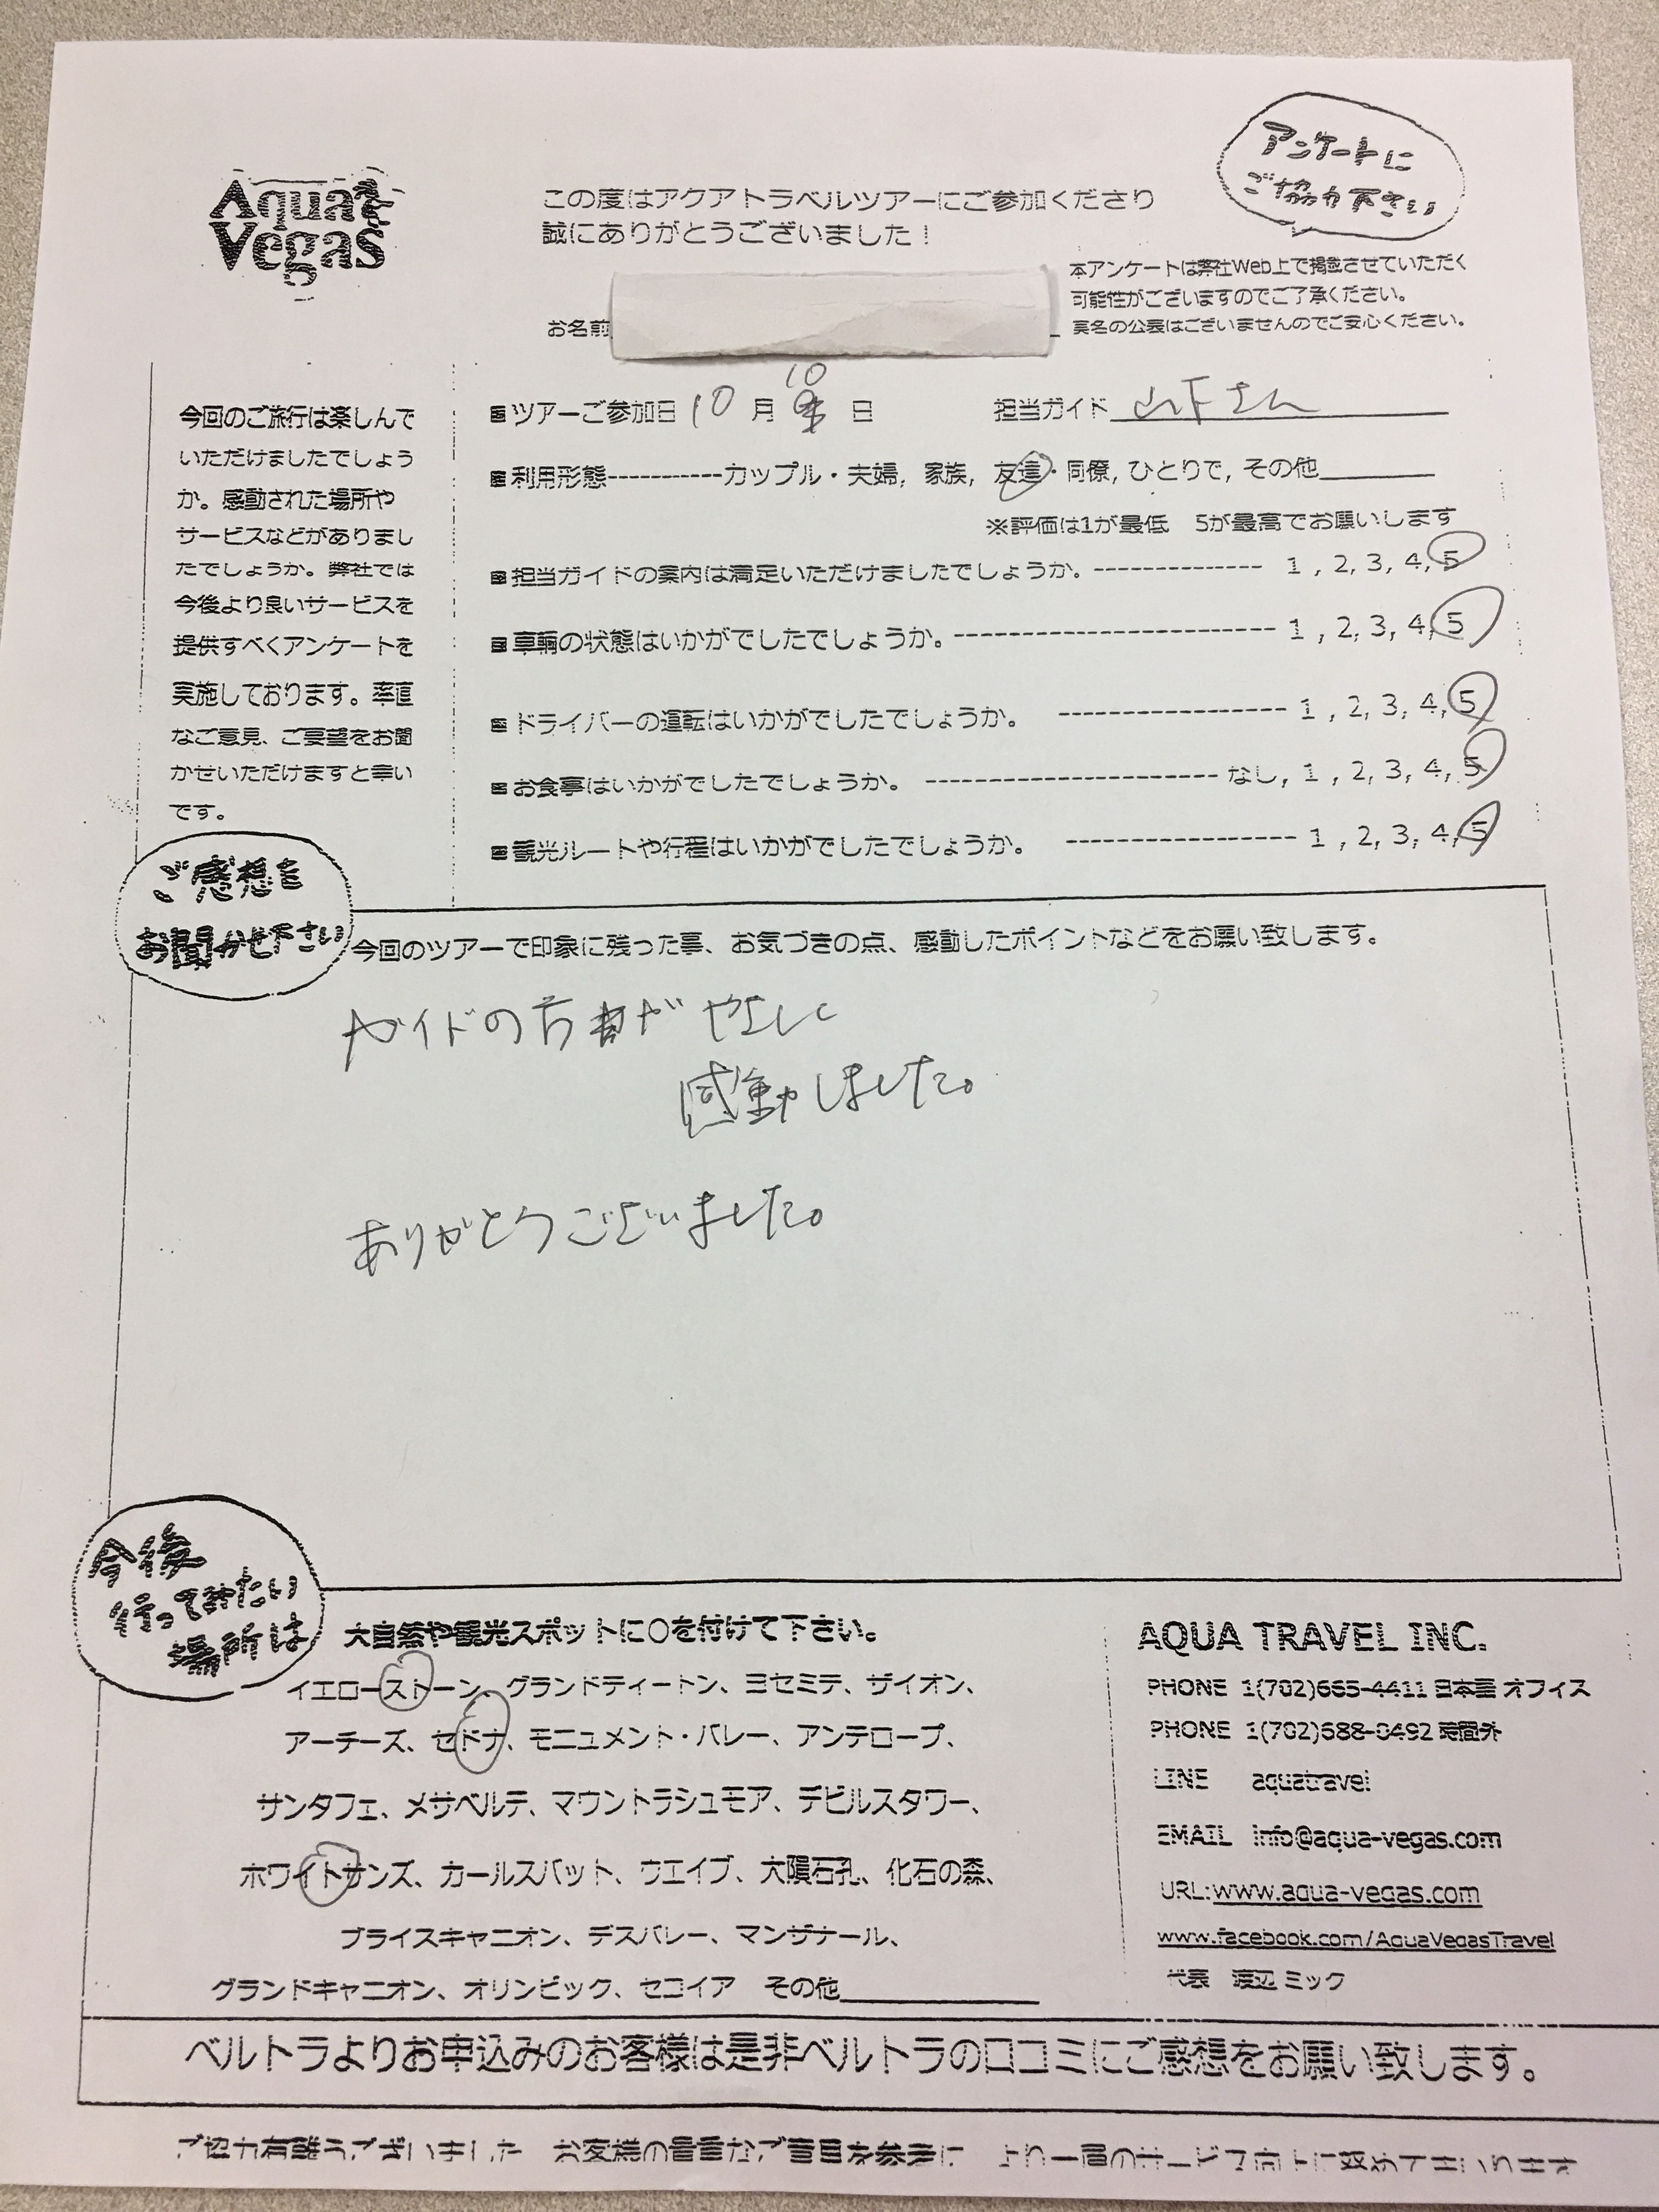 Aqua
Vegas
アンケートに
ご協力下さい
この度はアクアトラベルツアーにご参加くださり
誠にありがとうございました！
本アンケートは弊社Web上で掲載させていただく
可能性がございますのでご了承ください。
実名の公表はございませんのでご安心ください。
お名前
今回のご旅行は楽しんで
いただけましたでしょう
か。感動された場所や
サービスなどがありまし
たでしょうか。弊社では
今後より良いサービスを
提供すべくアンケートを
実施しております。率直
なご意見、ご要望をお聞
かせいただけますと幸い
です。
ツアーご参加日 10 月 10 日 担当ガイド 山下さん
利用形態-----------カップル・夫婦, 家族, 友達・同僚, ひとりで, その他
※評価は1が最低 5が最高でお願いします
担当ガイドの案内は満足いただけましたでしょうか。-------------- 1 , 2, 3, 4, 5
車輌の状態はいかがでしたでしょうか。-------------------------- 1 , 2, 3, 4, 5
ドライバーの運転はいかがでしたでしょうか。 ------------------ 1 , 2, 3, 4, 5
お食事はいかがでしたでしょうか。 ----------------------- なし, 1 , 2, 3, 4, 5
観光ルートや行程はいかがでしたでしょうか。 ------------------ 1 , 2, 3, 4, 5
ご感想を
お聞かせ下さい
今回のツアーで印象に残った事、お気づきの点、感動したポイントなどをお願い致します。
ガイドの方が
感動しました。
ありがとうございました。
今後
行ってみたい
場所は
大自然や観光スポットに○を付けて下さい。
イエローストーン、グランドティートン、ヨセミテ、ザイオン、
アーチーズ、セドナ、モニュメント・バレー、アンテロープ、
サンタフェ、メサベルデ、マウントラシュモア、デビルスタワー、
ホワイトサンズ、カールスバット、ウエイブ、大隕石孔、化石の森、
ブライスキャニオン、デスバレー、マンザナール、
グランドキャニオン、オリンピック、セコイア その他
AQUA TRAVEL INC.
PHONE 1(702)665-4411 日本語 オフィス
PHONE 1(702)688-0492 時間外
LINE aquatravel
EMAIL info@aqua-vegas.com
URL:www.aqua-vegas.com
www.facebook.com/AquaVegasTravel
代表 渡辺 ミック
ベルトラよりお申込みのお客様は是非ベルトラの口コミにご感想をお願い致します。
ご協力有難うございました お客様の貴重なご意見を参考に より一層のサービス向上に努めてまいります